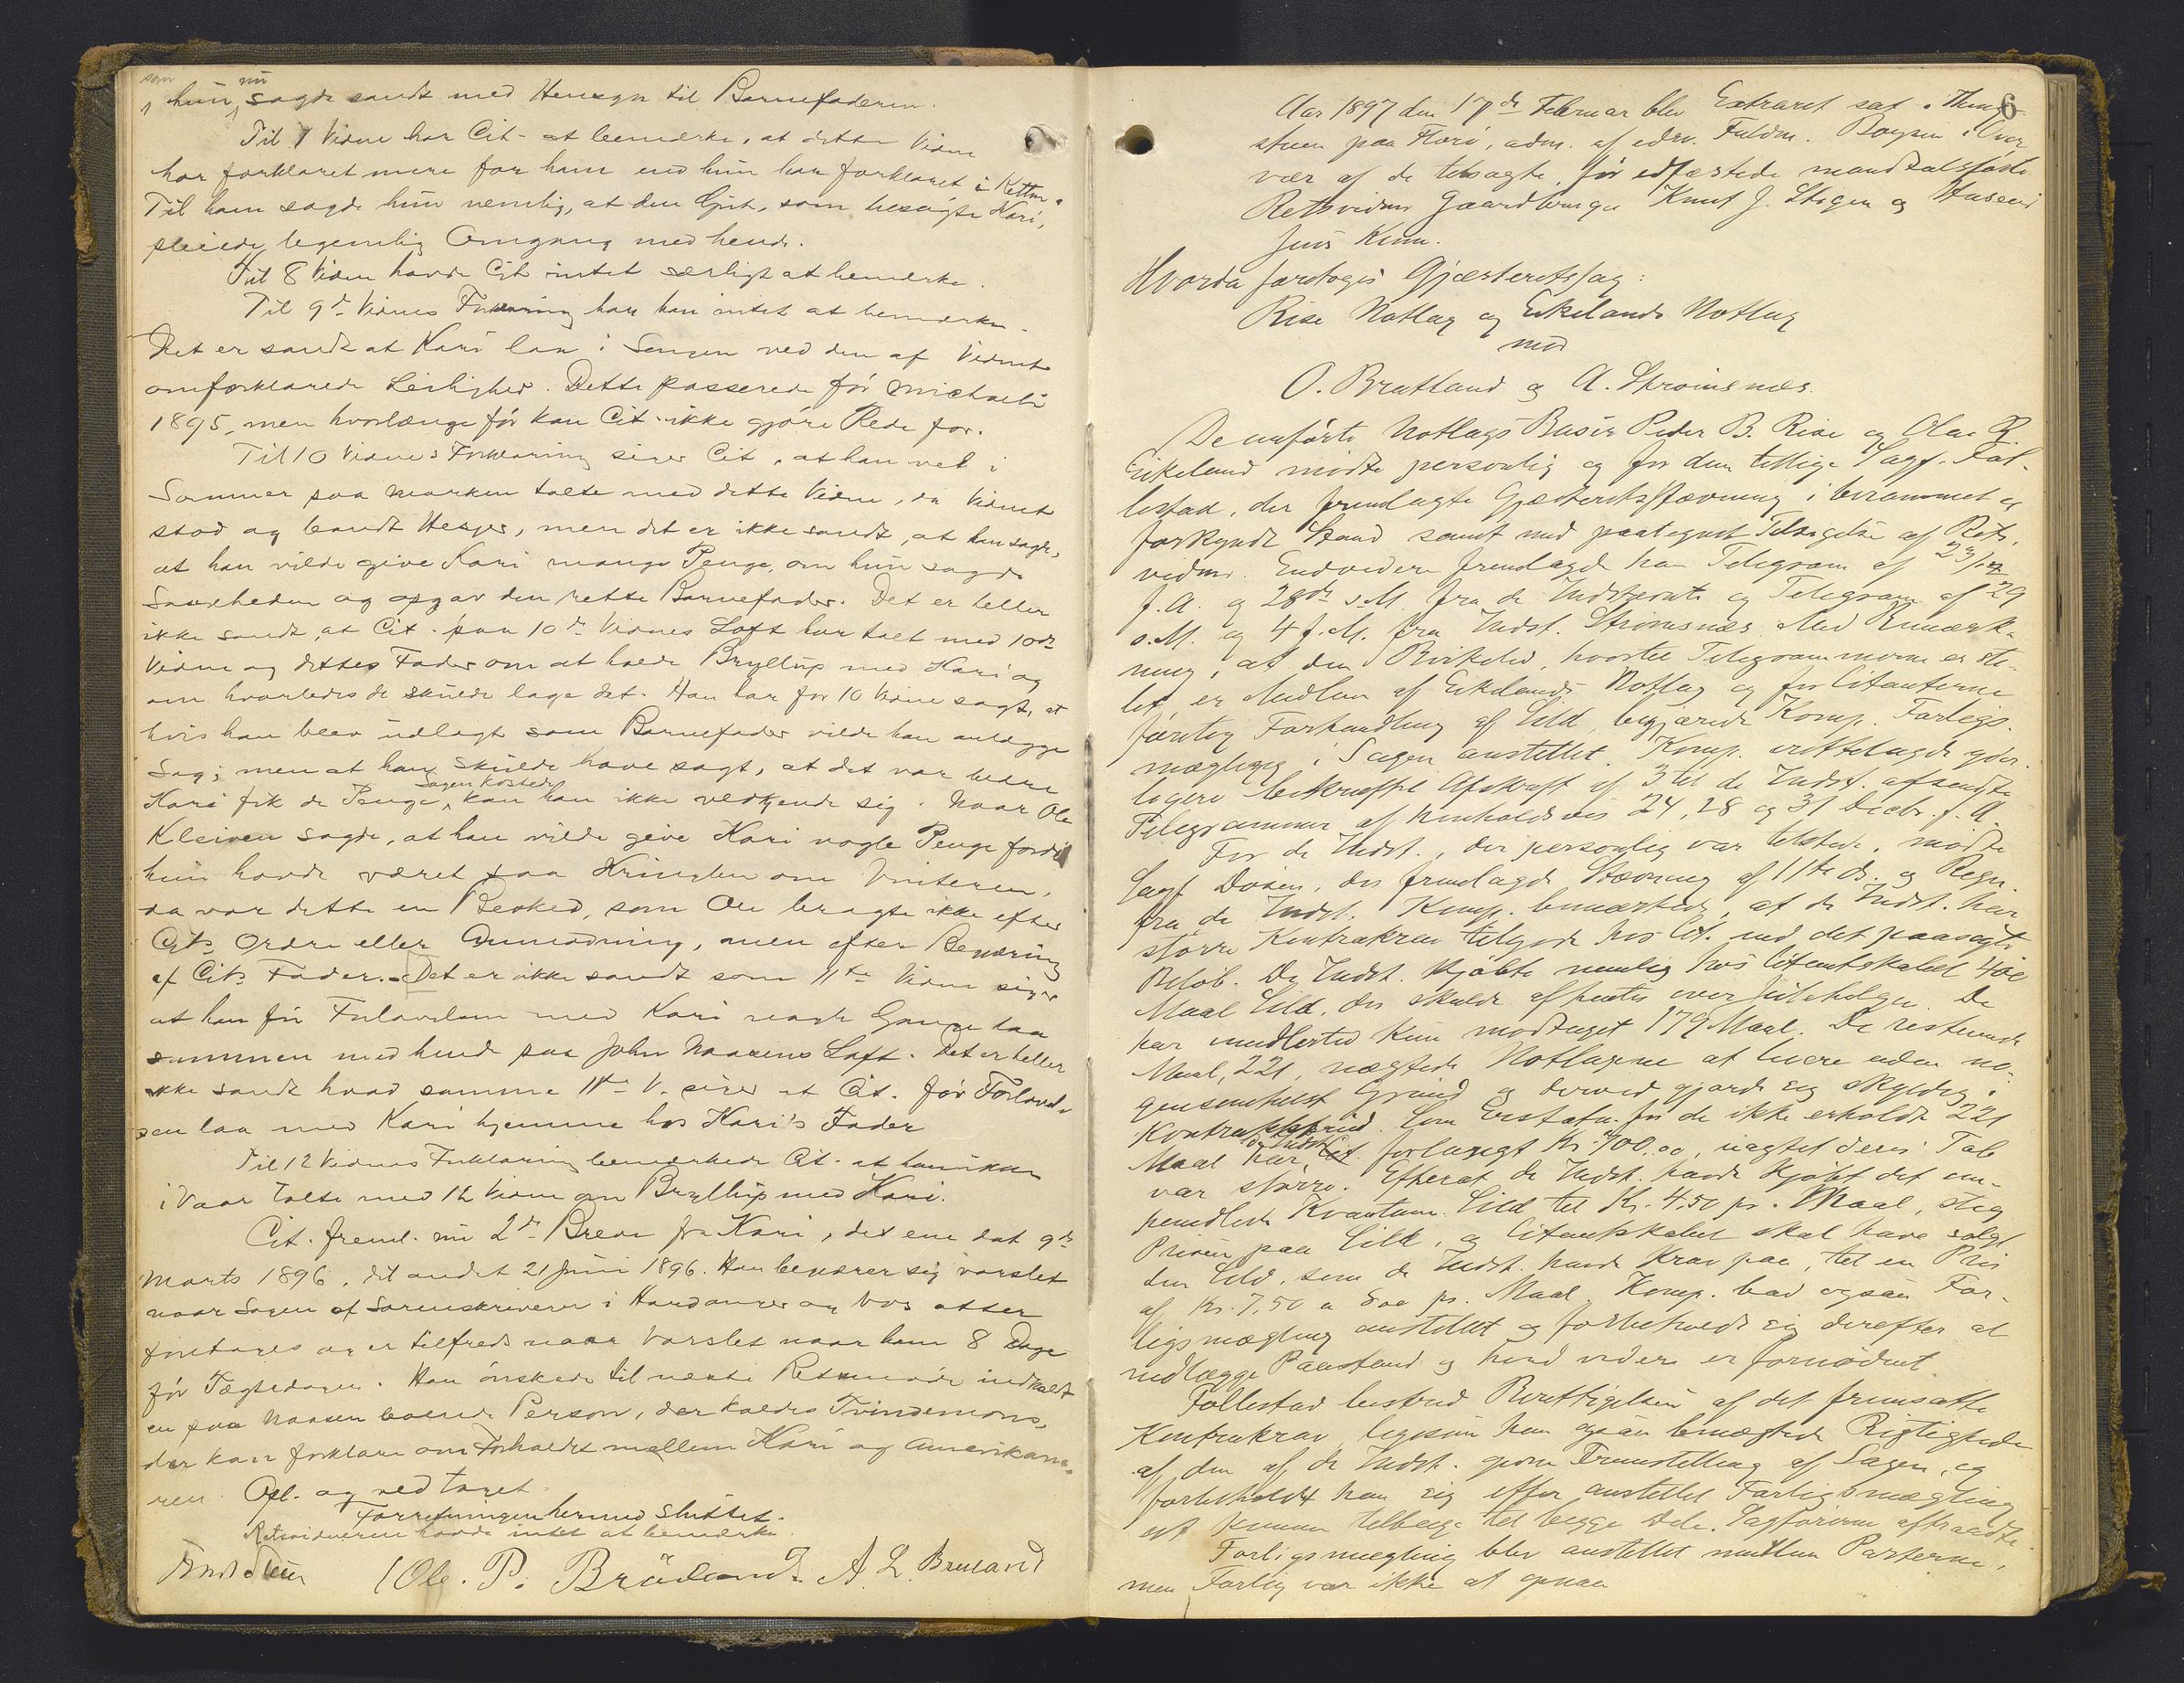 som nu
hun sagde sandt med Hensyn til Barnefaderen.
Til 7 Vidne har Cit. at bemærke, at dette Vidne
har forklaret mere for ham end hun har forklaret i Retten.
Til ham sagde hun nemlig, at den Gut, som besøgte Kari,
pleiede legemlig Omgang med hende.
Til 8 Vidne havde Cit intet særligt at bemærke.
Til 9de Vidnes Forklaring har han intet at bemærke.
Det er sandt at Kari laa i Sengen ved den af Vidnet
omforklarede Leilighed. Dette passerede før Michaeli
1895, men hvorlænge før kan Cit. ikke gjøre Rede for.
Til 10 Vidnes Forklaring siger Cit, at han vel i
Sommer paa Marken talte med dette Vidne, da Vidnet
stod og bandt Hesjer, men det er ikke sandt, at han sagde,
at han vilde give Kari mange Penge, om hun sagde
Sandheden og opgav den rette Barnefader. Det er heller
ikke sandt, at Cit. paa 10de Vidnes Loft har talt med 10de
Vidne og dettes Fader om at holde Bryllup med Kari og
om hvorledes de skulde lage det. Han har for 10 Vidne sagt, at
hvis han blev udlagt som Barnefader vilde han anlægge
Sag; men at han skulde have sagt, at det var bedre
Sagen kostede
Kari fik de Penge, kan han ikke vedkjende sig. Naar Ole
Kleiven sagde, at han vilde give Kari nogle Penge fordi
hun havde været paa Kringlen om Vinteren,
da var dette en Besked, som Ole bragte ikke efter
Cits Ordre eller Anmodning, men efter Begjæring
af Cits Fader. Det er ikke sandt som 11te Vidne siger
at han før Forlovelsen med Kari nogle Gange laa
sammen med hende paa John Naasens Loft. Det er heller
ikke sandt hvad samme 11te V. siger at Cit. før Forlovel-
sen laa med Kari hjemme hos Kari's Fader
Til 12 Vidnes Forklaring bemærkede Cit. at han ikke
i Vaar talte med 12 Vidne om Bryllup med Kari.
Cit. freml. nu 2de Breve fra Kari, det ene dat 9de
Marts 1896, det andet 21 Juni 1896. Han begjærer sig varslet
naar Sagen af Sorenskriveren i Hardanger og Vos atter
foretages og er tilfreds naar Varslet naar ham 8 Dage
før Tægtedagen. Han ønskede til næste Retsmøde indkaldt
en paa Naasen boende Person, der kaldes Tvindemons,
der kan forklare om Forholdet mellem Kari og Amerikane-
ren. Opl. og vedtaget.
Forretningen hermed sluttet.
Retsvidnerne havde intet at bemærke.
Ole. P. Brüland A. L. Bruland
6
Aar 1897 den 17de Februar blev Extraret sat i Thing-
stuen paa Florø, adm. af edsv. Fuldm. Boysen i Over-
vær af de tilsagte, før edfæstede mandtalsførte
Retsvidner Gaardbruger Knut J. Stegen og Huseier
Jens Kinn.
Hvorda foretoges Gjæsteretssag:
Rise Notlag og Eikelands Notlag
mod
O. Bratland og A. Strømsnes.
De anførte Notlags Baser Peder B. Rise og Olai R.
Eikeland mødte personlig og for dem tillige Sagf. Fol-
lestad, der fremlagte Gjæsteretsstævning i berammet og
forkyndt Stand samt med paategnet Tilsigelse af Rets-
vidner. Endvidere fremlagde han Telegram af 23/12
f. A. og 28de s. M. fra de Indstevnte og Telegram af 29
s. M. og 4 f. M. fra Indst. Strømsnes. Med Bemærk-
ning, at den Birkeland, hvortil Telegrammerne er sti-
let, er Medlem af Eikelands Notlag og for Citanterne
førte Forhandling af Sild, begjærede Komp. Forligs-
mægling i Sagen anstillet. Komp. irettelagde yder-
ligere bekræftet Afskrift af 3 til de Indst. afsendte
Telegrammer af henholdsvis 24, 28 og 31 Decbr. f. A.
For de Indst., der personlig var tilstede, mødte
Sagf Døsen, der fremlagde Stævning af 11te ds. og Regn.
fra de Indst. Komp. bemærkede, at de Indst. har
større Kontrakrav tilgode hos Cit. end det paasagte
Beløb. De Indst. kjøbte nemlig hos Citantskabet 400
Maal Sild, der skulde afhentes over Julehelgen. De
har imidlertid kun modtaget 179 Maal. De resterende
Maal, 221, nægtede Notlagene at levere uden no-
gensomhelst Grund og derved gjorde sig skyldig i
Kontraktsbrud. Som Erstatn. for de ikke erholdte 221
de Indst
Maal har forlangt Kr. 700.00, uagtet deres Tab
var større. Efterat de Indst. havde kjøbt det om-
handlede Kvantum Sild til Kr. 4,50 pr. Maal, steg
Prisen paa Sild, og Citantskabet skal have solgt
den Sild, som de Indst. havde Krav paa, til en Pris
af Kr. 7,50 a 8,00 pr. Maal. Komp. bad ogsaa For-
ligsmægling anstillet og forbeholdt sig derefter at
nedlægge Paastand og hvad videre er fornødent
Follestad bestred Berettigelsen af det fremsatte
Kontrakrav, ligesom han ogsaa benægtede Rigtigheden
af den af de Indst. gjorte Fremstilling af Sagen, og
forbeholdt han sig efter anstillet Forligsmægling
at komme tilbage til begge Dele. Sagførerne aftraadte.
Forligsmægling blev anstillet mellem Parterne,
men Forlig var ikke at opnaa